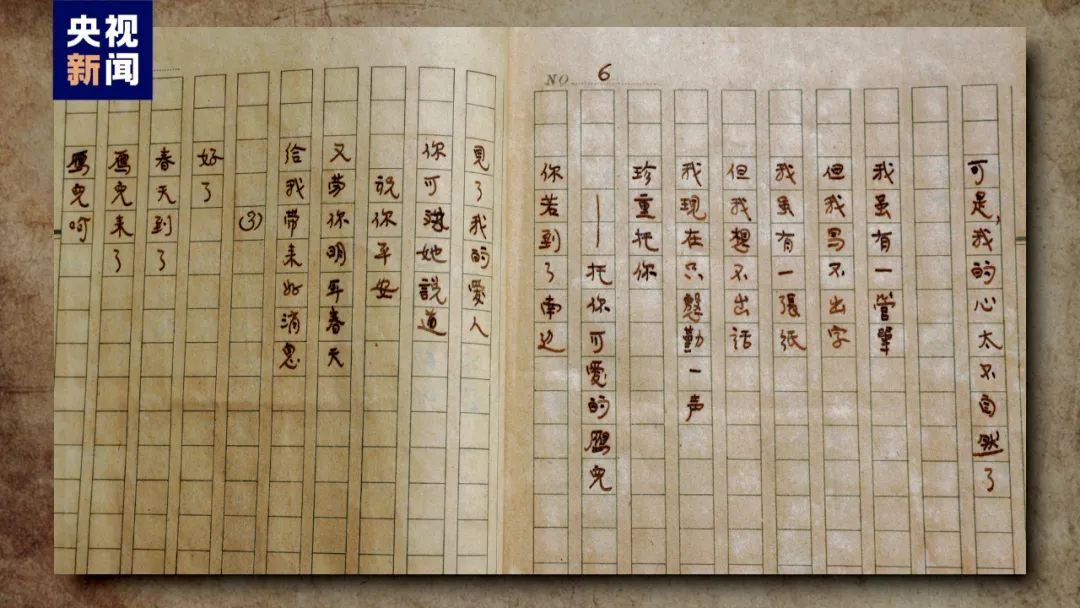 央视
新闻
NO 6
可是,我的心太不自然了
我虽有一管筆
但我写不出字
我虽有一張紙
但我想不出話
我现在只慇勤一声
珍重把你
——托你可愛的雁兒
你若到了南边
見了我的愛人
你可她説道
说你平安
又劳你明年春天
给我带来好消息
(3)
好了
春天到了
雁兒来了
雁兒呵